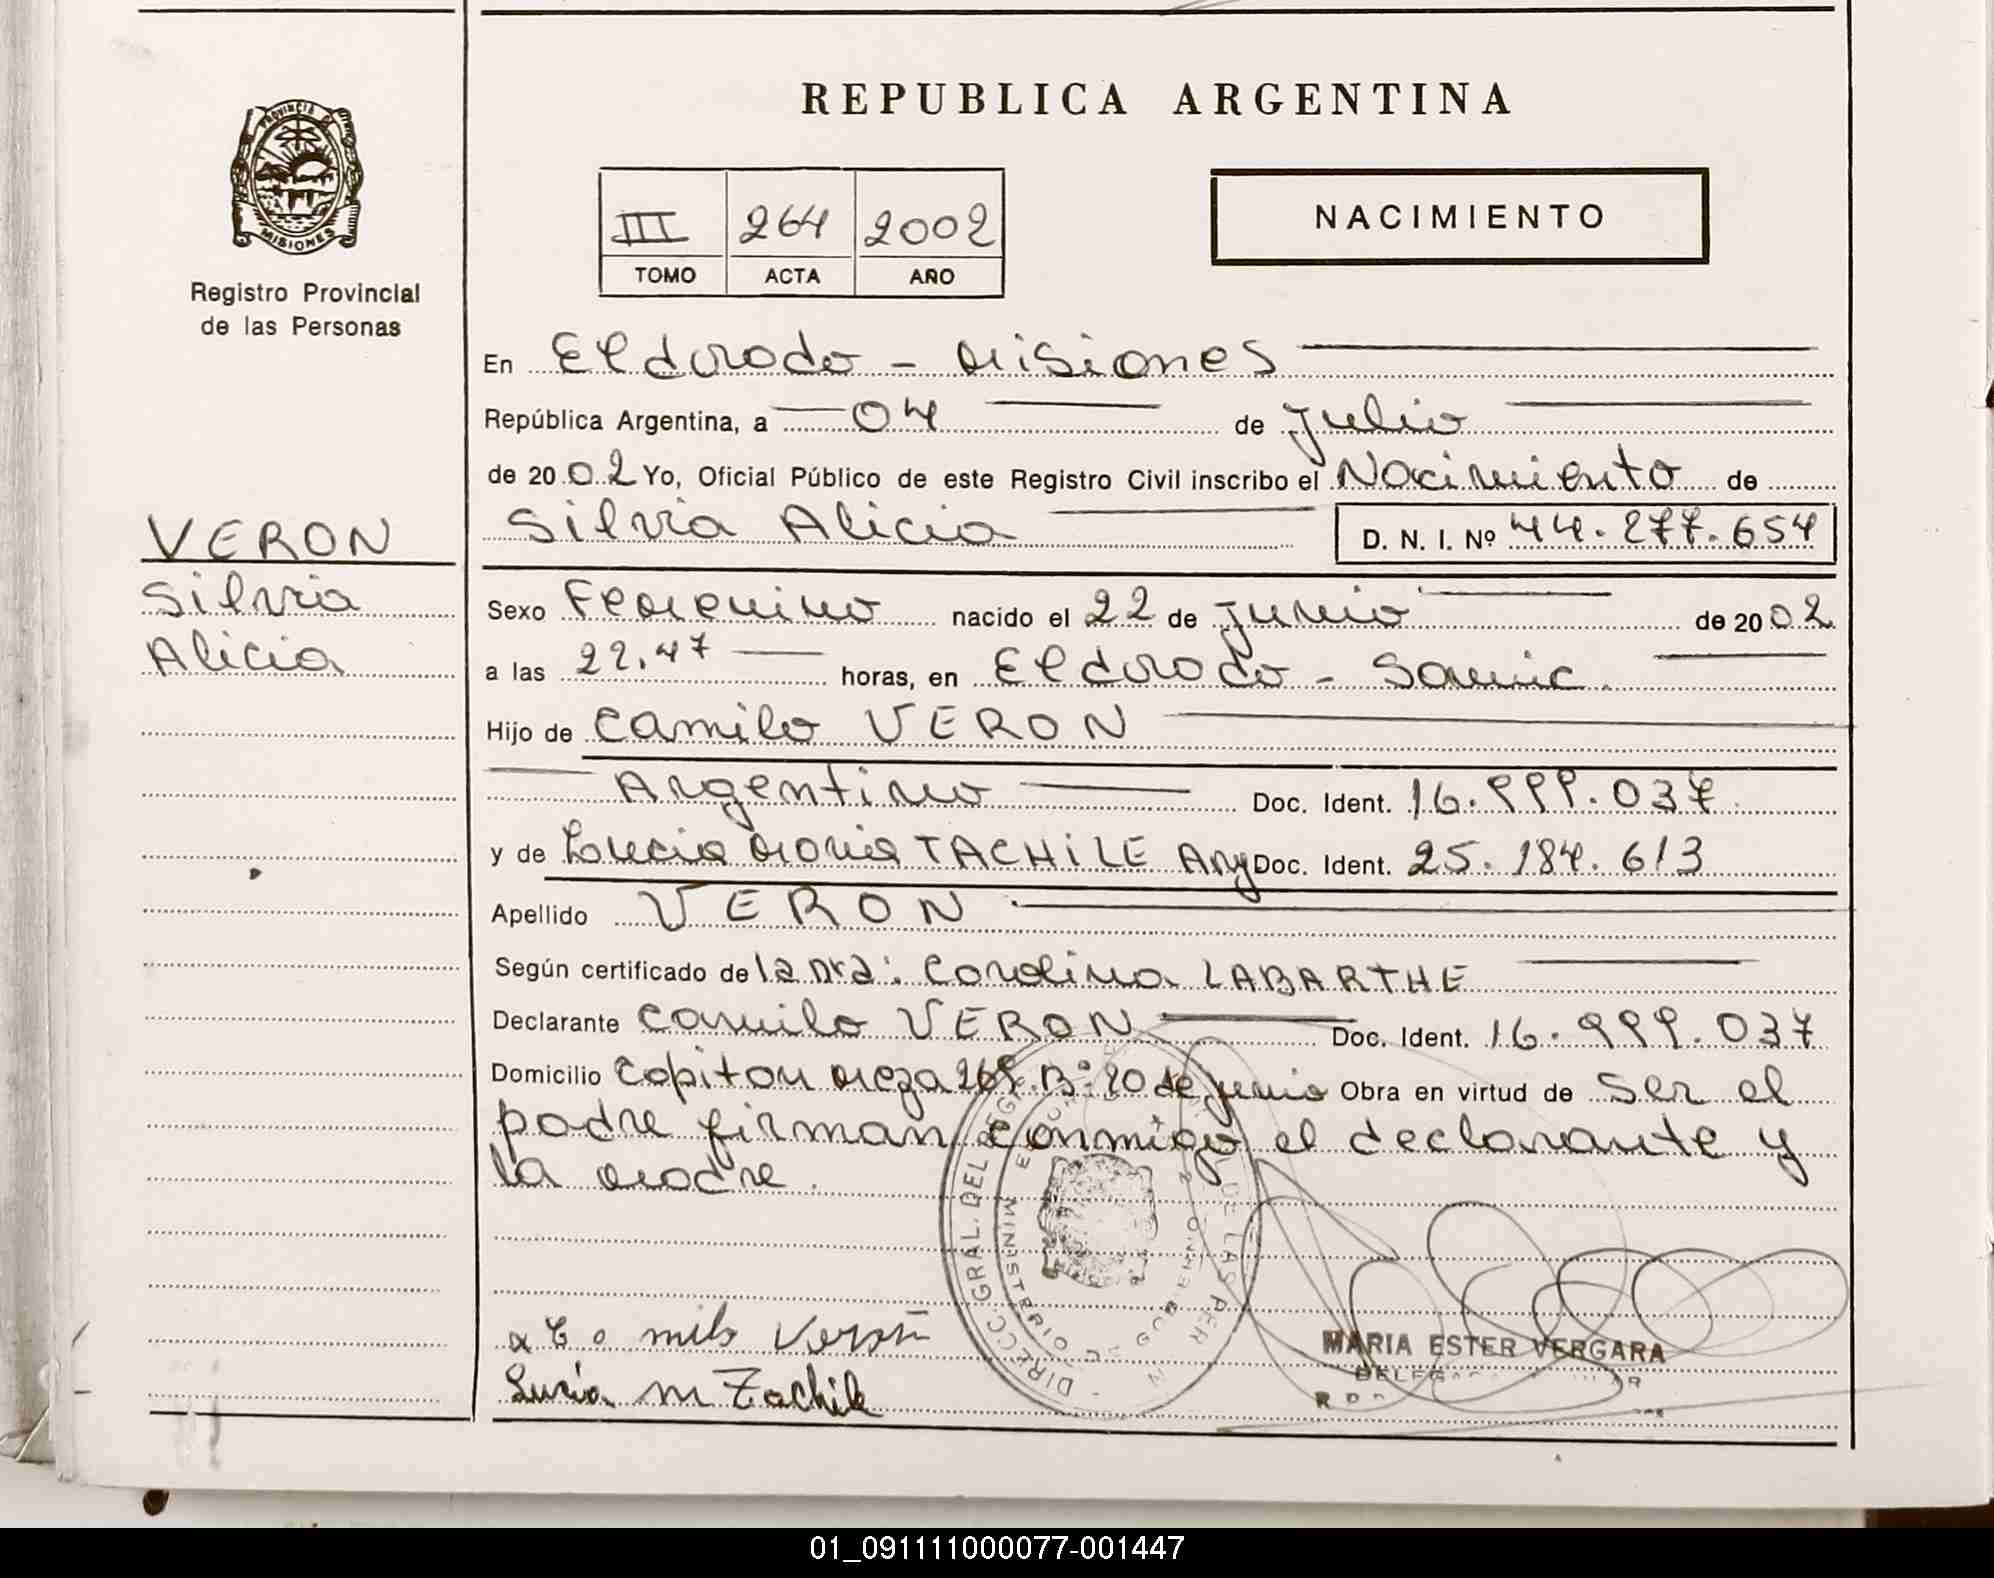 REPUBLICA ARGENTINA
PROVINCIA DE
MISIONES
Registro Provincial
de las Personas
III 264 2002
TOMO ACTA AÑO
NACIMIENTO
En Eldorado - Misiones
República Argentina, a 04 de Julio
de 2002 Yo, Oficial Público de este Registro Civil inscribo el Nacimiento de
Silvia Alicia D. N. I. Nº 44.277.654
VERON
Silvia
Alicia
Sexo Femenino nacido el 22 de Junio de 2002
a las 22.47 horas, en Eldorado - Samic.
Hijo de Camilo VERON
Argentino Doc. Ident. 16.999.037
y de Lucia Maria TACHILE Arg Doc. Ident. 25.184.613
Apellido VERON
Según certificado de la Dra: Carolina LABARTHE
Declarante Camilo VERON Doc. Ident. 16.999.037
Domicilio Capitan Meza 269. Bº 20 de Junio Obra en virtud de Ser el
padre firman conmigo el declarante y
la madre.
DIRECC. GRAL. DEL REG. DE LAS PER
MINISTERIO DE GOBIERNO
x Camilo Verón
Lucia M Tachile
MARIA ESTER VERGARA
01_091111000077-001447